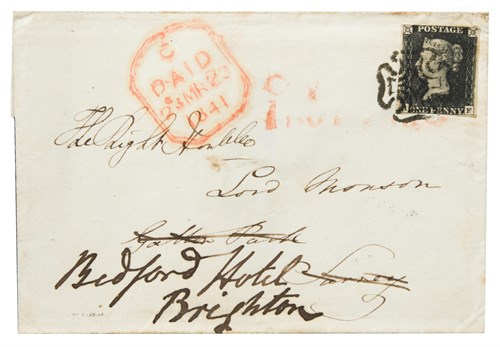 POSTAGE
ONE PENNY
C
PAID
23 MR 23
1841
The Right Honble
Lord Monson
Gatton Park
Bedford Hotel Surrey
Brighton